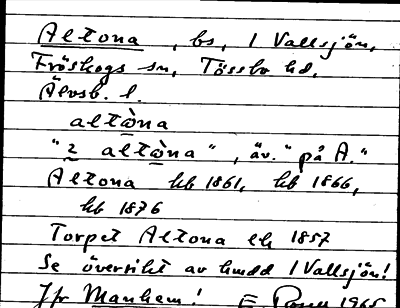 Altona, bs, I Vallsjön,
Fröskogs sn, Tössbo hd,
Älvsb. l.
altòna
"i altòna", äv. "på A."
Altona hb 1861, hb 1866,
hb 1876
Torpet Altona ek 1857
Se översikt av hmdd I Vallsjön!
Jfr Manhem! E 1965